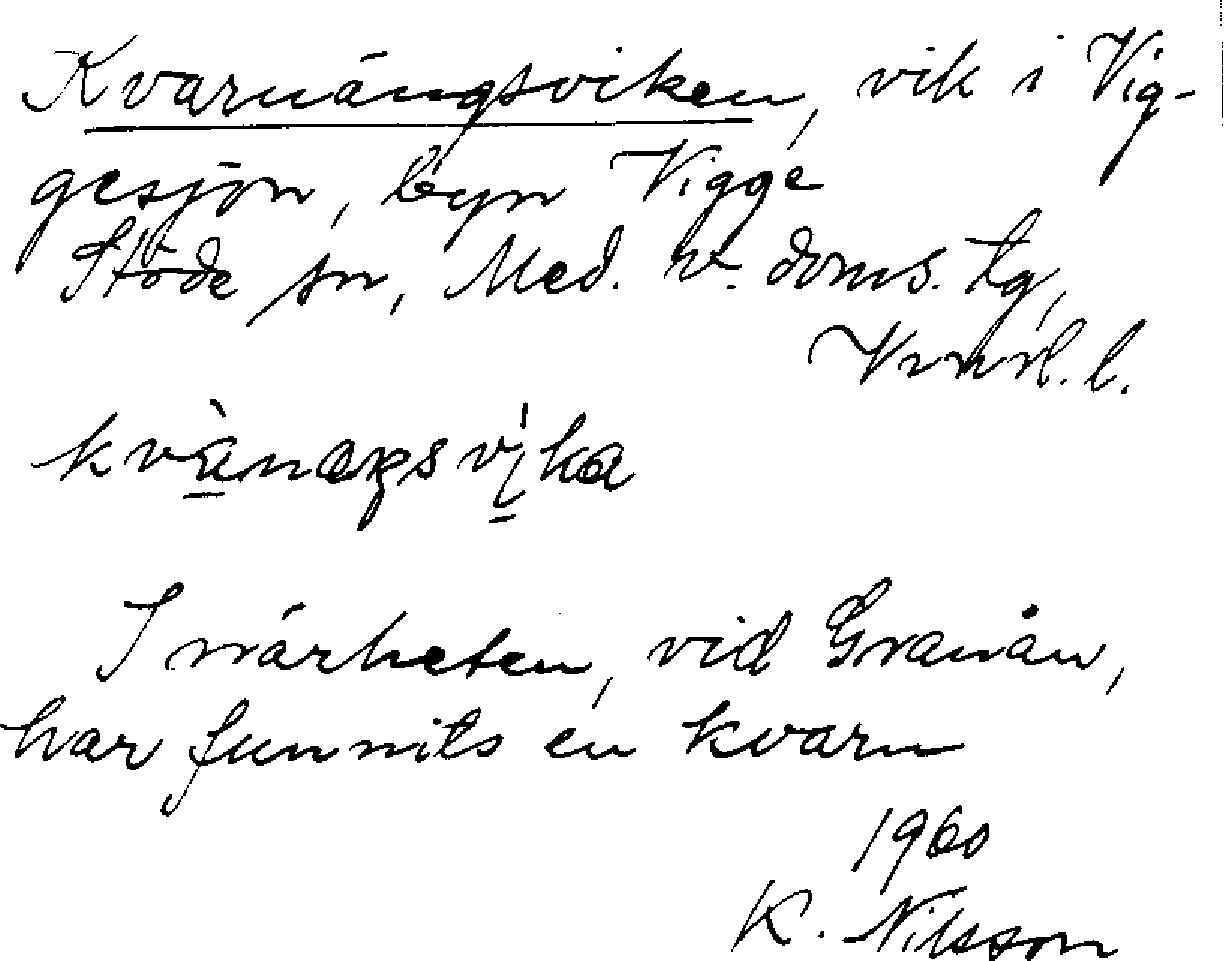 Kvarnängsviken, vik i Vig-
gesjön, byn Vigge
Stöde sn, Med. v. doms. tg,
Vnrl. l.
kvànæŋsvika
I närheten, vid Granån,
har funnits en kvarn
1960
K. Nilsson